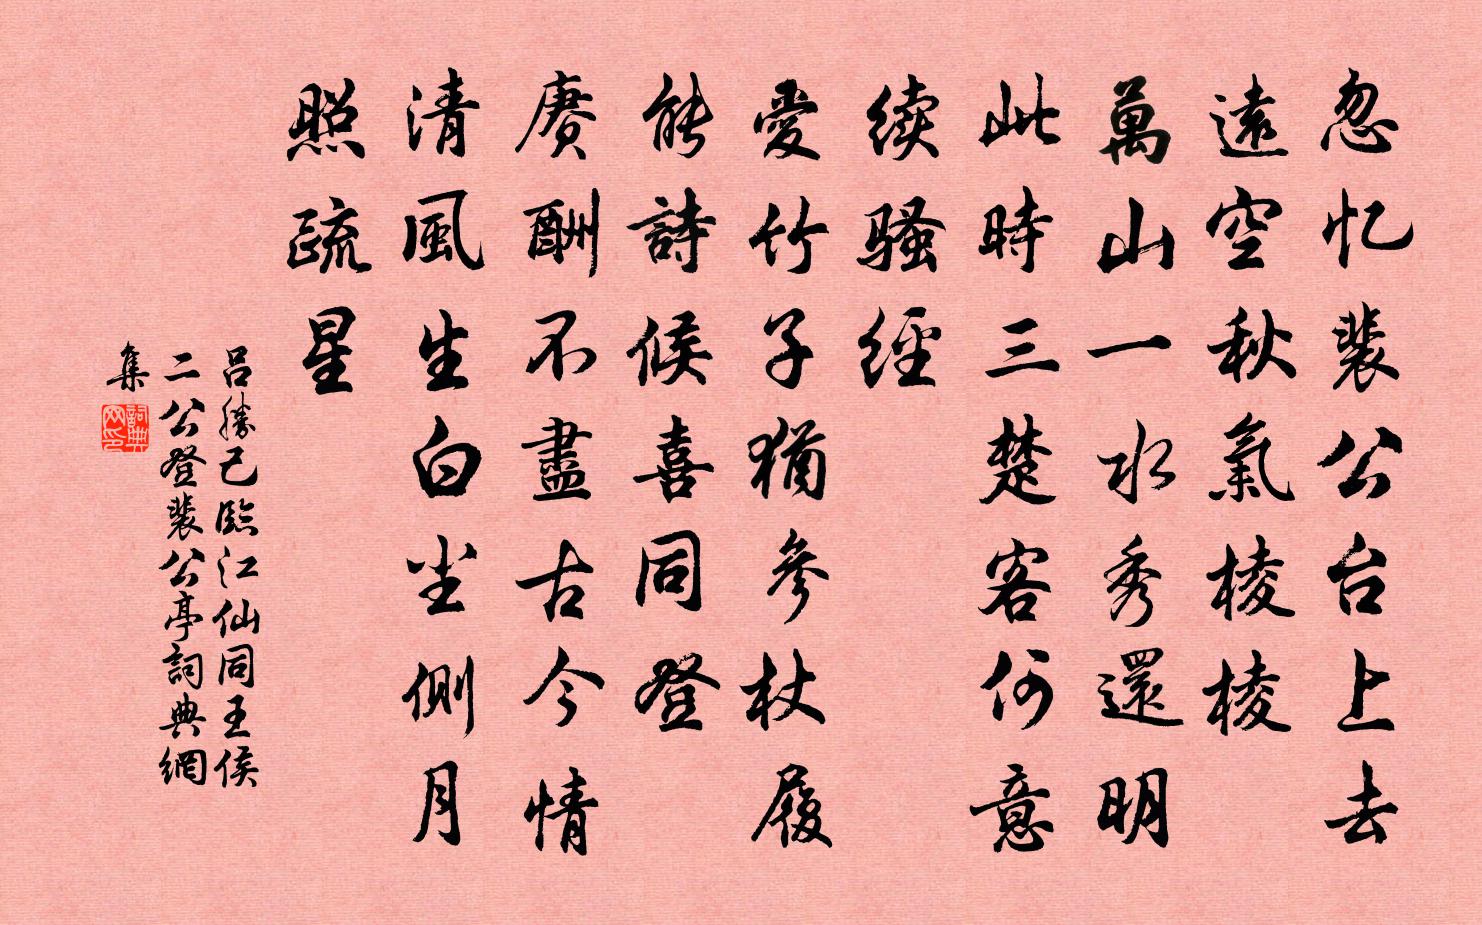 忽忆裴公台上去
遠空秋氣棱棱
萬山一水秀還明
此時三楚客何意
续騷經
愛竹子猶参杖履
能詩候喜同登
赓酬不盡古今情
清風生白坐側月
照疏星
吕勝己臨江仙同王侯
二公登裴公亭詞典網
集
詞典网印